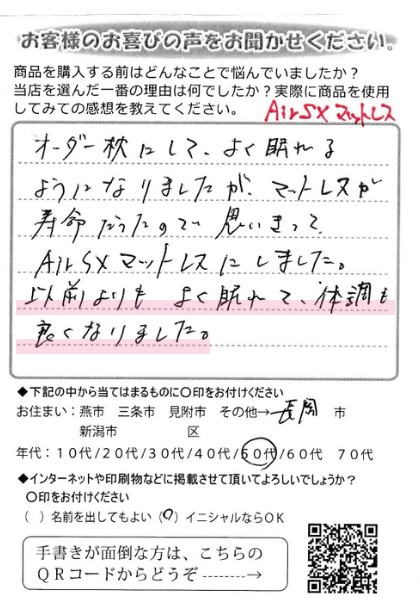 お客様のお喜びの声をお聞かせください。
商品を購入する前はどんなことで悩んでいましたか？
当店を選んだ一番の理由は何でしたか？実際に商品を使用
してみての感想を教えてください。 AirSXマットレス
オーダー枕にして、よく眠れる
ようになりましたが、マットレスが
寿命だったので思いきって
AirSXマットレスにしました。
以前よりも よく眠れて、体調も
良くなりました。
◆下記の中から当てはまるものに〇印をお付けください
お住まい：燕市 三条市 見附市 その他→長岡 市
新潟市 区
年代：１０代/２０代/３０代/４０代/５０代/６０代 ７０代
◆インターネットや印刷物などに掲載させて頂いてよろしいでしょうか？
〇印をお付けください
（ ）名前を出してもよい（〇）イニシャルならＯＫ
手書きが面倒な方は、こちらの
ＱＲコードからどうぞ--------→